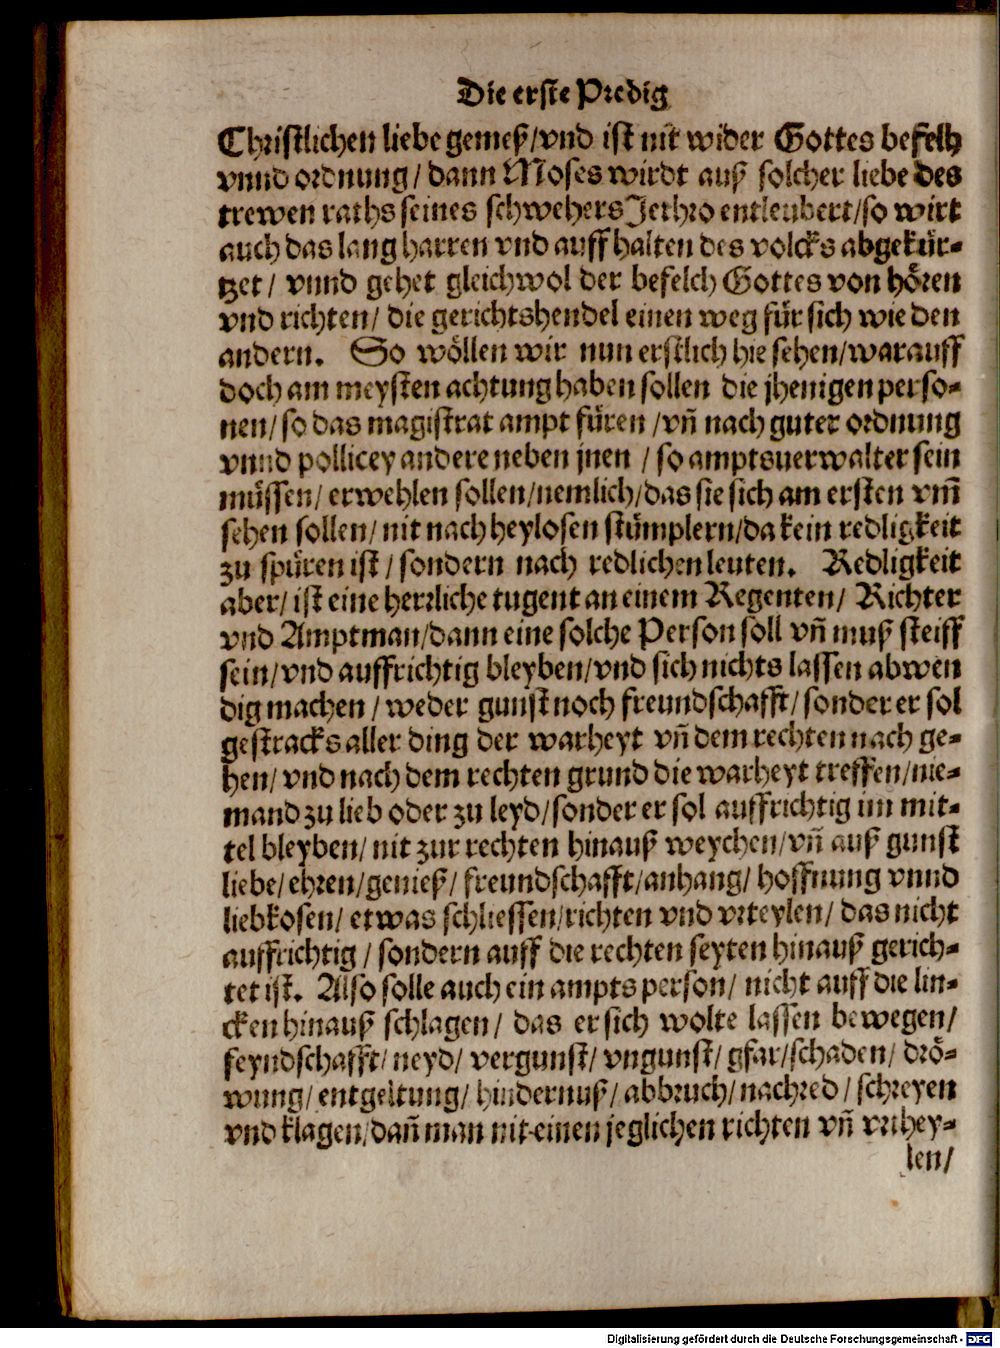 Die erste Predig
Christlichen liebe gemeß/vnd ist nit wider Gottes befelh
vnnd ordnung/ dann Moses wirdt auß solcher liebe des
trewen raths seines schwehers Jethro entleubert/so wirt
auch das lang harren vnd auffhalten des volcks abgekür-
tzet/ vnnd gehet gleichwol der befelch Gottes von hören
vnd richten/ die gerichtshendel einen weg für sich wie den
andern. So wöllen wir nun erstlich hie sehen/warauff
doch am meysten achtung haben sollen die jhenigen perso-
nen/ so das magistrat ampt füren /vñ nach guter ordnung
vnnd pollicey andere neben jnen / so amptsuerwalter sein
müssen/ erwehlen sollen/nemlich/das sie sich am ersten vm̃
sehen sollen/ nit nach heylosen stümplern/da kein redligkeit
zu spüren ist / sondern nach redlichen leuten. Redligkeit
aber/ ist eine herrliche tugent an einem Regenten/ Richter
vnd Amptman/dann eine solche Person soll vñ muß steiff
sein/vnd auffrichtig bleyben/vnd sich nichts lassen abwen
dig machen / weder gunst noch freundschafft/ sonder er sol
gestracks aller ding der warheyt vñ dem rechten nach ge-
hen/ vnd nach dem rechten grund die warheyt treffen/nie-
mand zu lieb oder zu leyd/sonder er sol auffrichtig im mit-
tel bleyben/ nit zur rechten hinauß weychen/vñ auß gunst
liebe/ ehren/genieß/ freundschafft/anhang/ hoffnung vnnd
liebkosen/ etwas schliessen/richten vnd vrteylen/ das nicht
auffrichtig / sondern auff die rechten seyten hinauß gerich-
tet ist. Also solle auch ein ampts person/ nicht auff die lin-
cken hinauß schlagen/ das er sich wolte lassen bewegen/
feyndschafft/ neyd/ vergunst/ vngunst/ gfar/schaden/ drö-
wung/ entgeltung/ hindernuß/ abbruch/ nachred / schreyen
vnd klagen/dañ man nit einen jeglichen richten vñ vrthey-
len/
Digitalisierung gefördert durch die Deutsche Forschungsgemeinschaft - DFG